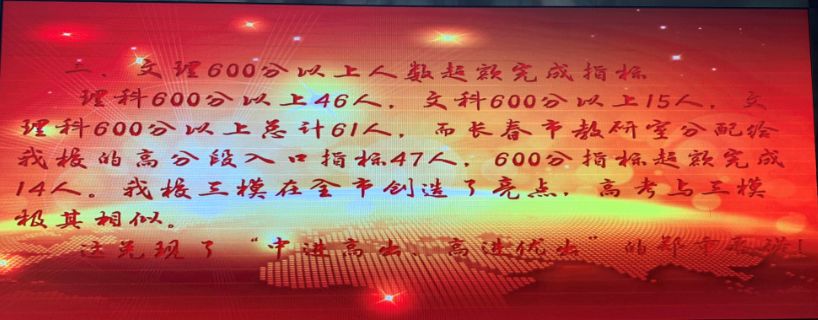 三、文理600分以上人数超额完成指标
理科600分以上46人，文科600分以上15人，文
理科600分以上总计61人，而长春市教研室分配给
我校的高分段入口指标47人，600分指标超额完成
14人。我校三模在全市创造了亮点，高考与三模
极其相似。
这兑现了“中进高出、高进优出”的郑重承诺！